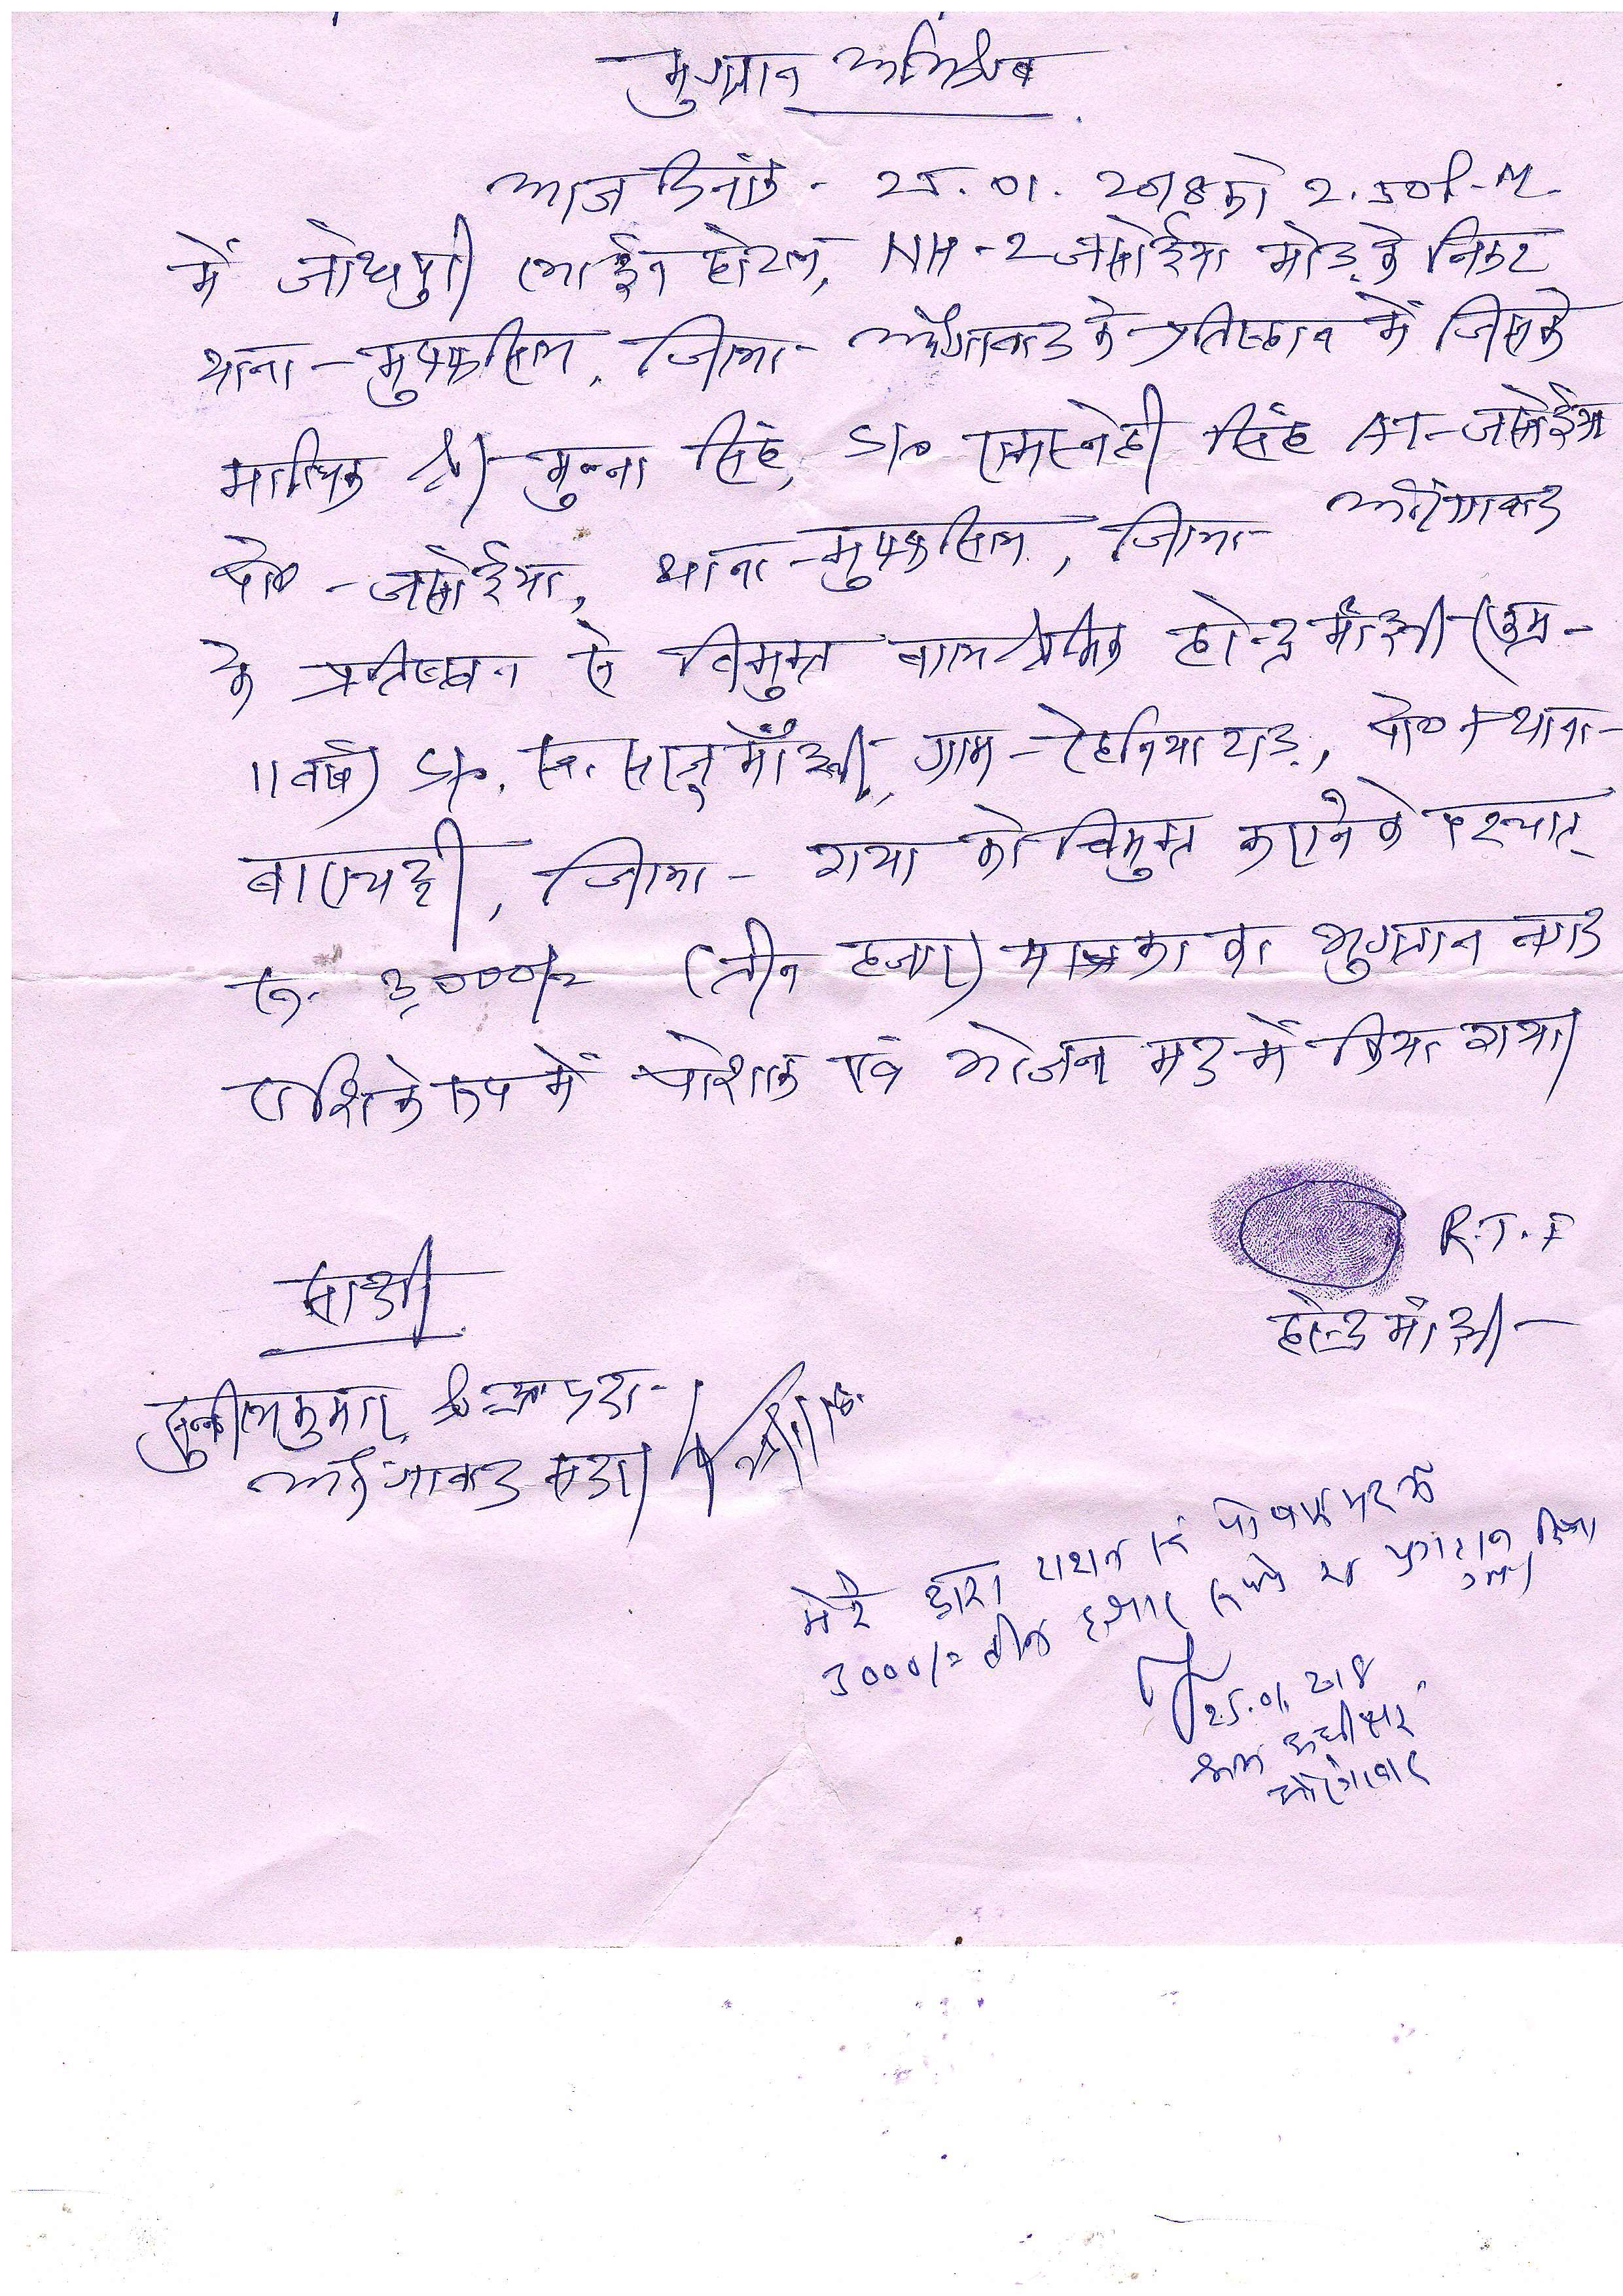 भुगतान अभिलेख
आज दिनांक - 25.01.2018 को 2.50 P.M.
में जोधपुरी लाईन होटल, NH-2 जसोईया मोड़ के निकट
थाना - मुफ्फसिल, जिला - औरंगाबाद के प्रतिष्ठान में जिसके
मालिक श्री मुन्ना सिंह, S/o रामस्नेही सिंह ग्राम - जसोईया
पो० - जसोईया, थाना - मुफ्फसिल, जिला - औरंगाबाद
के प्रतिष्ठान से विमुक्त बाल श्रमिक हरेन्द्र माँझी (उम्र -
11 वर्ष) S/o. स्व. सरजू माँझी, ग्राम - पो० + थाना -
बाराचट्टी, जिला - गया को विमुक्त कराने के पश्चात्
रु. 3,000/= (तीन हजार) मात्र का भुगतान नगद
राशि के रूप में पोशाक एवं भोजन मद में किया गया।
R.T.I
हरेन्द्र माँझी
साक्षी
सुनील कुमार,
औरंगाबाद सदर
मेरे द्वारा राशन एवं पोशाक मद में
3000/= तीन हजार रुपये का भुगतान किया
गया।
25.01.2018
श्रम अधीक्षक
औरंगाबाद